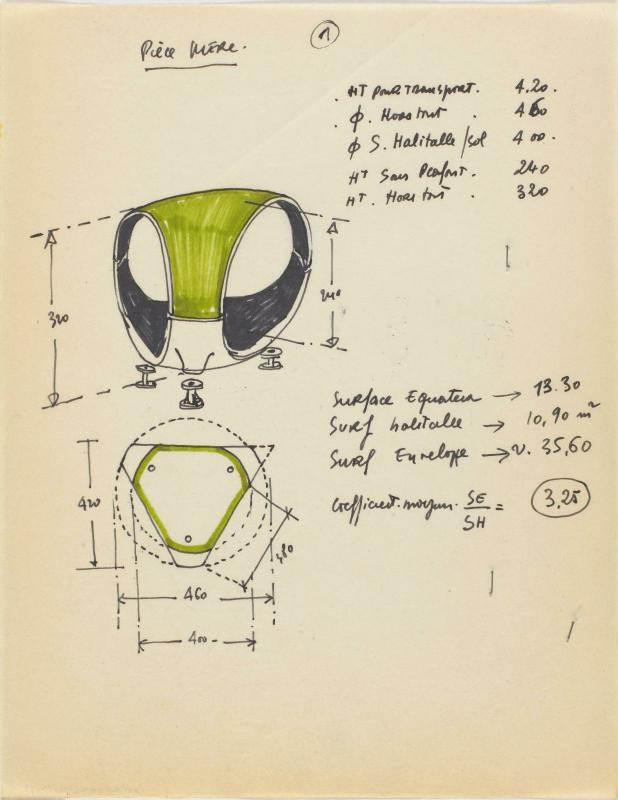 Pièce MERE.
1
. HT pour Transport. 4.20.
. φ. Hors tout . 460
φ S. Habitable/sol 400.
HT Sans Plafond. 240
HT. Hors tout . 320
320
240
Surface Equateur → 13.30
Surf habitable → 10,90 m²
Surf Enveloppe → v. 35,60
Coefficient-moyen. SE/SH = 3,25
420
480
460
400